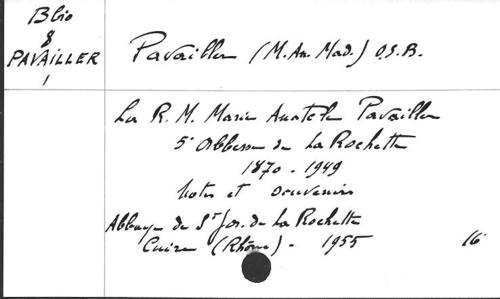 Bbio
8
PAVAILLER
1
Pavailler (M. An. Mad.) O.S.B.
La R. M. Marie Anatole Pavailler
5e Abbesse de La Rochette
1870 - 1949
Notes et souvenirs
Abbaye de St Jos. de La Rochette
Cuire (Rhône) - 1955
16